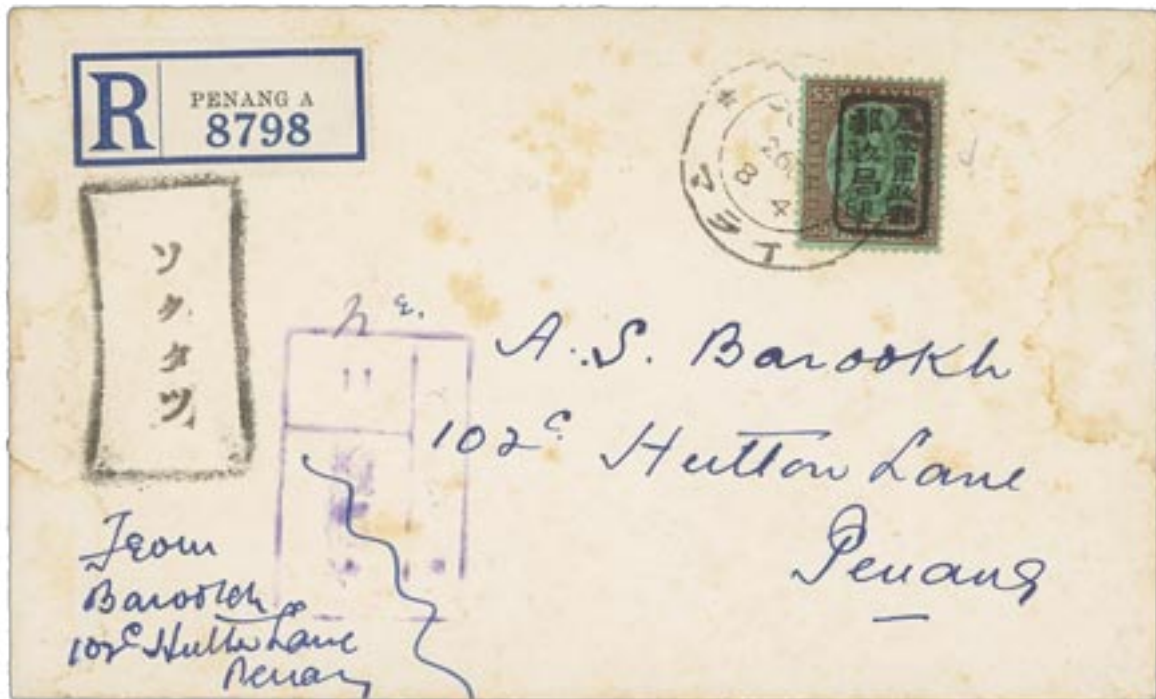 R
PENANG A
8798
$5 MALAYA $5
ソクタツ
8 4
A. S. Barookh
102c Hutton Lane
Penang
From
Barookh
102c Hutton Lane
Penang